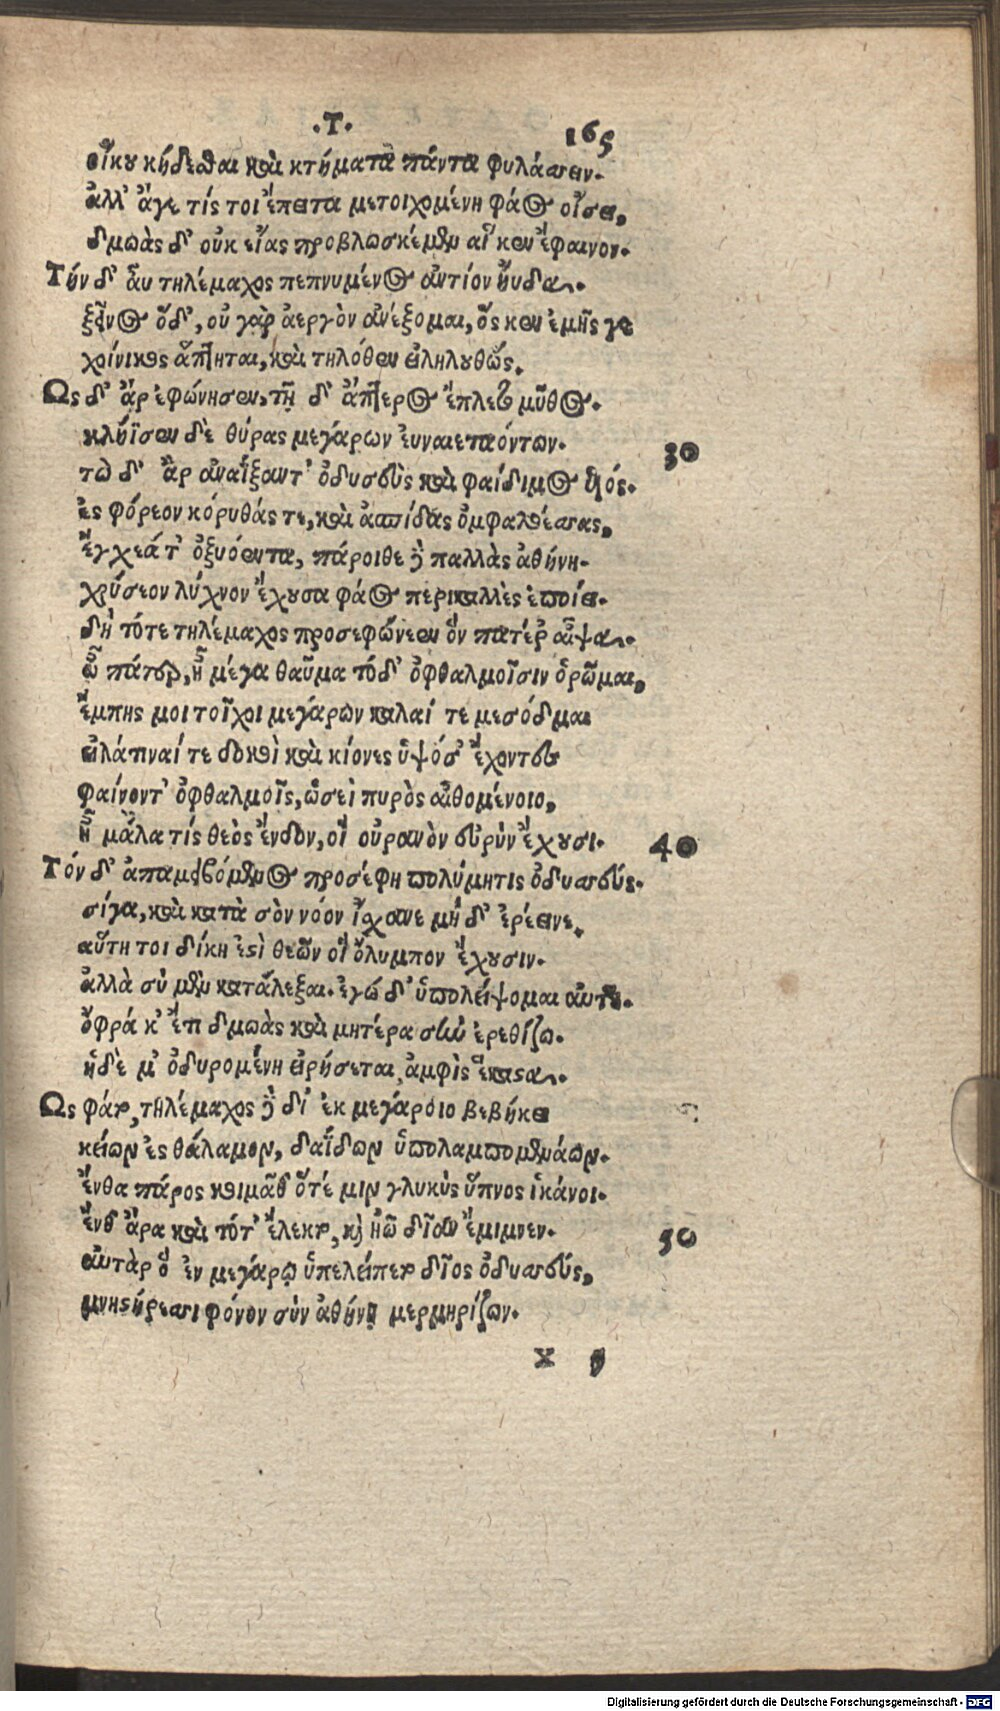 .Τ. 165
οἴκου κήδεσθαι καὶ κτήματα πάντα φυλάσσειν.
ἀλλ' ἄγε τίς τοι ἔπειτα μετοιχομένη φάος οἴσει,
δμωὰς δ' οὐκ εἴας προβλωσκέμεν αἵ κεν ἔφαινον.
Τὴν δ' αὖ τηλέμαχος πεπνυμένος ἀντίον ηὔδα.
ξεῖνος ὅδ', οὐ γὰρ ἀεργὸν ἀνέξομαι, ὅς κεν ἐμῆς γε
χοίνικος ἅπτηται, καὶ τηλόθεν εἰληλουθώς.
Ως δ' ἄρ ἐφώνησεν, τῇ δ' ἄπτερος ἔπλετο μῦθος.
κλήϊσεν δὲ θύρας μεγάρων ἐυναιεταόντων. 30
τὼ δ' ἄρ ἀναΐξαντ' ὀδυσεὺς καὶ φαίδιμος υἱός.
ἐς φόρεον κόρυθάς τε, καὶ ἀσπίδας ὀμφαλοέσσας,
ἔγχεά τ' ὀξυόεντα, πάροιθε δὲ παλλὰς ἀθήνη.
χρύσεον λύχνον ἔχουσα φάος περικαλλὲς ἐποίει.
δὴ τότε τηλέμαχος προσεφώνεεν ὃν πατέρ' αἶψα.
ὦ πάτερ, ἦ μέγα θαῦμα τόδ' ὀφθαλμοῖσιν ὁρῶμαι,
ἔμπης μοι τοῖχοι μεγάρων καλαί τε μεσόδμαι
εἰλάπιναί τε δοκοὶ καὶ κίονες ὑψόσ' ἔχοντες
φαίνοντ' ὀφθαλμοῖς, ὡσεὶ πυρὸς αἰθομένοιο,
ἦ μάλα τίς θεὸς ἔνδον, οἳ οὐρανὸν εὐρὺν ἔχουσι. 40
Τόν δ' ἀπαμειβόμενος προσέφη πολύμητις ὀδυσσεύς.
σίγα, καὶ κατὰ σὸν νόον ἴσχανε μὴ δ' ἐρέεινε.
αὕτη τοι δίκη ἐστὶ θεῶν οἳ ὄλυμπον ἔχουσιν.
ἀλλὰ σὺ μὲν κατάλεξαι. ἐγώ δ' ὑπολείψομαι αὐτοῦ.
ὄφρά κ' ἔτι δμωὰς καὶ μητέρα σὴν ἐρεθίζω.
ἡ δὲ μ' ὀδυρομένη εἰρήσεται, ἀμφὶς ἕκαστα.
Ως φάτο, τηλέμαχος δὲ δι' ἐκ μεγάροιο βεβήκει
κείων ἐς θάλαμον, δαΐδων ὑπολαμπομενάων.
ἔνθα πάρος κοιμᾶθ' ὅτέ μιν γλυκὺς ὕπνος ἱκάνοι.
ἔνθ' ἄρα καὶ τότ' ἔλεκτο, καὶ ἠῶ δῖαν ἔμιμνεν. 50
αὐτὰρ ὃ ἐν μεγάρῳ ὑπελείπετο δῖος ὀδυσσεύς,
μνηστήρεσσι φόνον σὺν ἀθήνῃ μερμηρίζων.
X 5
Digitalisierung gefördert durch die Deutsche Forschungsgemeinschaft - DFG